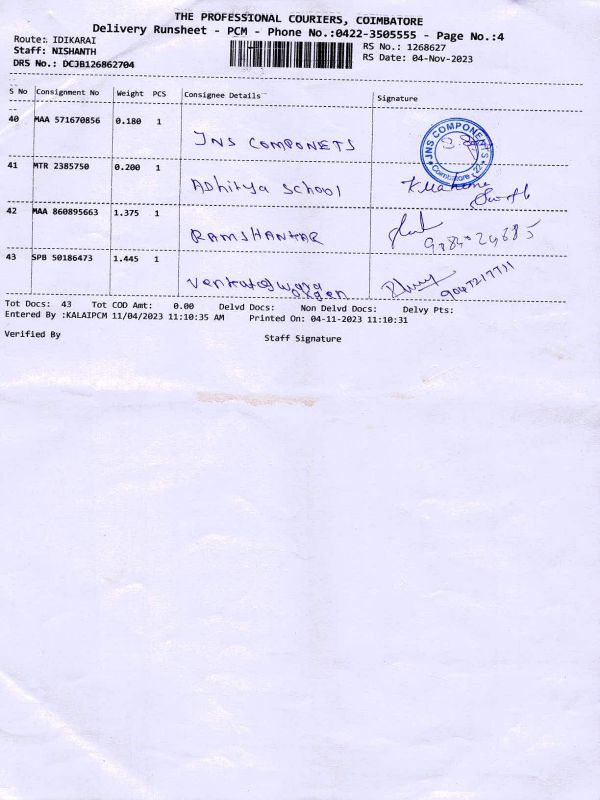 THE PROFESSIONAL COURIERS, COIMBATORE
Delivery Runsheet - PCM - Phone No.:0422-3505555 - Page No.:4
Route: IDIKARAI
RS No.: 1268627
Staff: NISHANTH
RS Date: 04-Nov-2023
DRS No.: DCJB126862704
S No Consignment No Weight PCS Consignee Details Signature
40 MAA 571670856 0.180 1 JNS COMPONETS
JNS COMPONENTS Coimbatore - 22
41 MTR 2385750 0.200 1 ADhitya School
42 MAA 860895663 1.375 1 RAMSHANKAR
43 SPB 50186473 1.445 1
Tot Docs: 43 Tot COD Amt: 0.00 Delvd Docs: Non Delvd Docs: Delvy Pts:
Entered By :KALAIPCM 11/04/2023 11:10:35 AM Printed On: 04-11-2023 11:10:31
Verified By Staff Signature